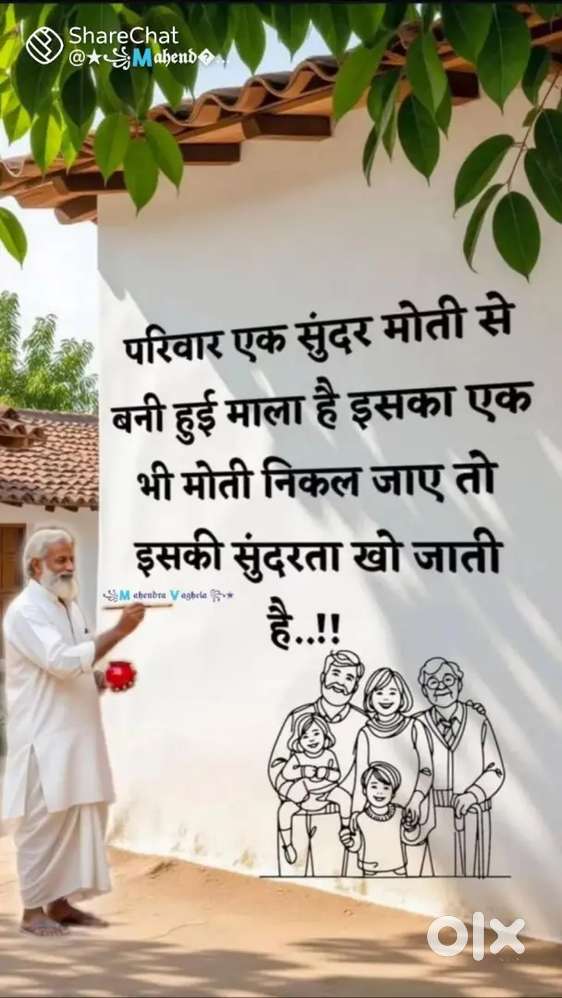 ShareChat
@★Mahend�...
परिवार एक सुंदर मोती से
बनी हुई माला है इसका एक
भी मोती निकल जाए तो
इसकी सुंदरता खो जाती
Mahendra Vaghela
है..!!
olx